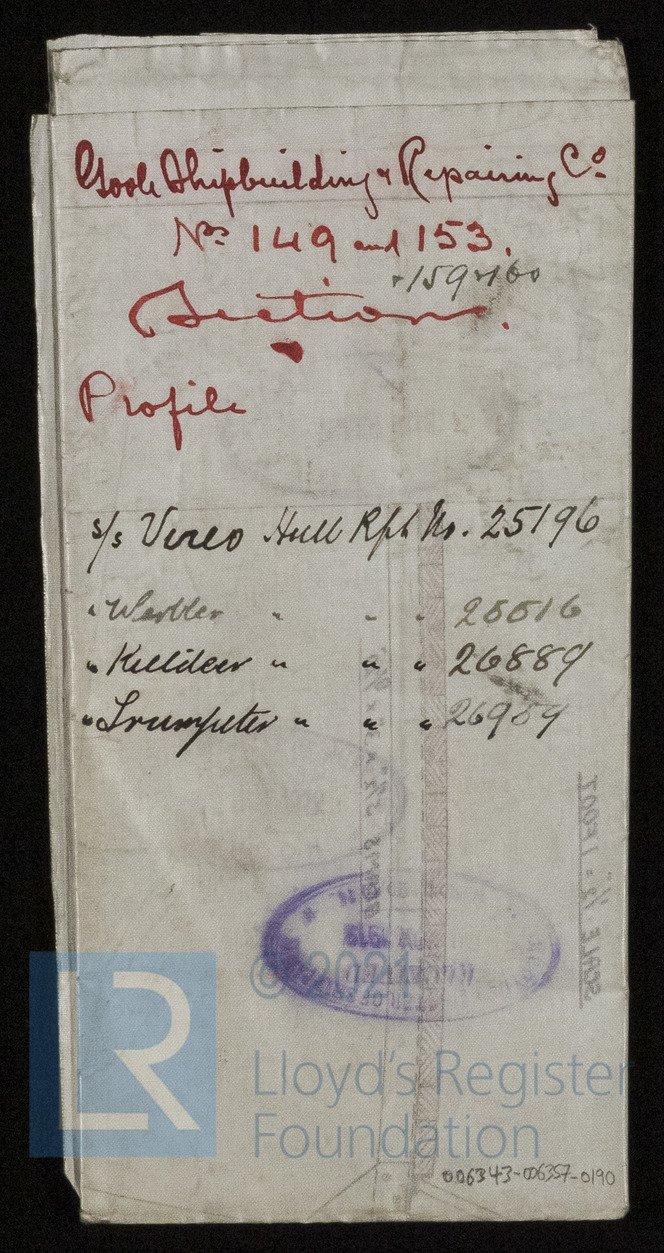 Goole Shipbuilding & Repairing Co
Nos 149 and 153.
+ 159 & 160
Section.
Profile
s/s Vireo Hull Rpt No. 25196
" Warbler " " " 25516
" Killdeer " " " 26889
" Trumpeter " " " 26989
SCALE ½" = 1 FOOT
© 2021
LR
Lloyd's Register
Foundation
006343-006357-0190